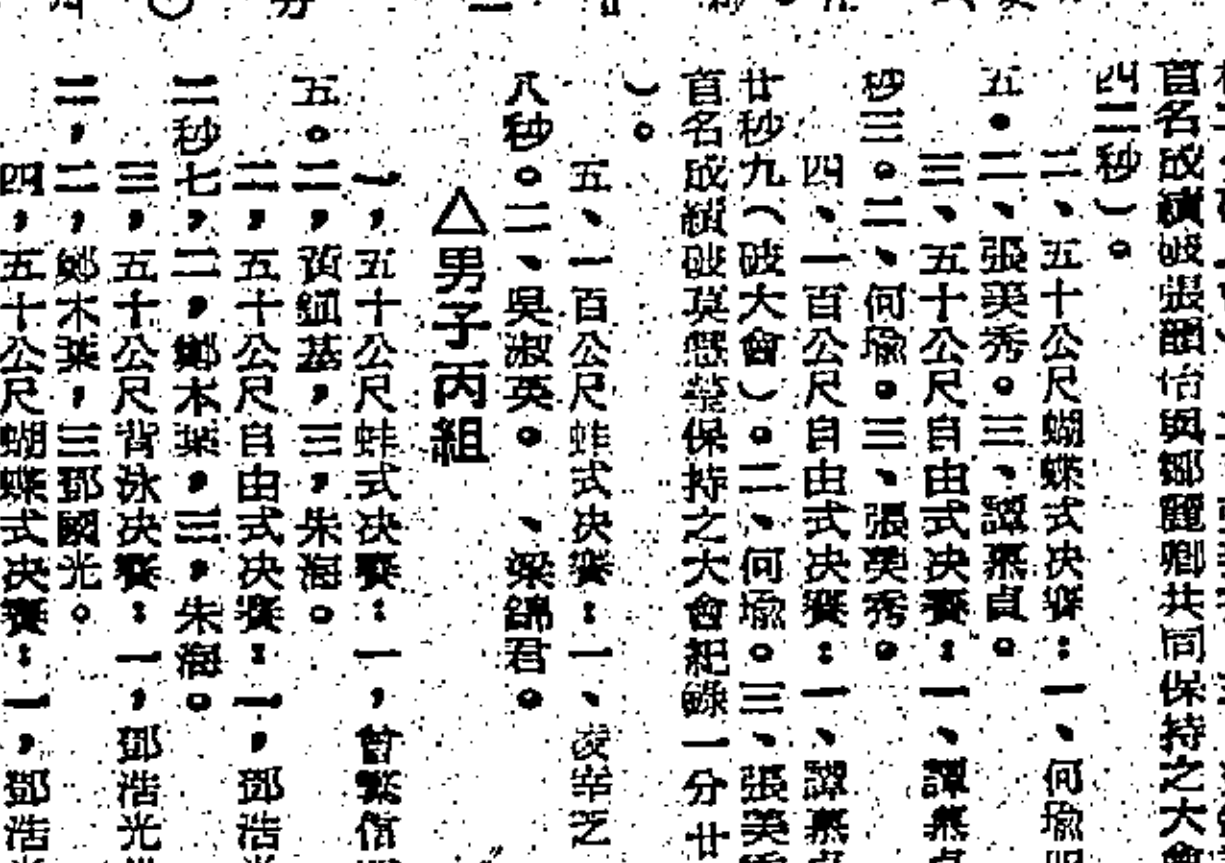 首名成績破張韻怡與鄒麗卿共同保持之大會
四二秒）。
二、五十公尺蝴蝶式决賽：一、何瑜
五。二、張美秀。三、譚燕貞。
三、五十公尺自由式决賽：一、譚燕貞
秒三。二、何瑜。三、張美秀。
四、一百公尺自由式决賽：一、譚燕貞
廿秒九（破大會）。二、何瑜。三、張美秀
首名成績破莫愁瑩保持之大會紀錄一分廿
）。
五、一百公尺蛙式决賽：一、凌幸芝
八秒。二、吳淑英。、梁錦君。
△男子丙組
一，五十公尺蛙式决賽：一，曾繁信
五。二，黃鎭基，三，朱海。
二，五十公尺自由式决賽：一，鄧浩光
三秒七，二，鄭木葉，三，朱海。
三，五十公尺背泳决賽：一，鄧浩光
二，二，鄭木葉，三鄧國光。
四，五十公尺蝴蝶式决賽：一，鄧浩光